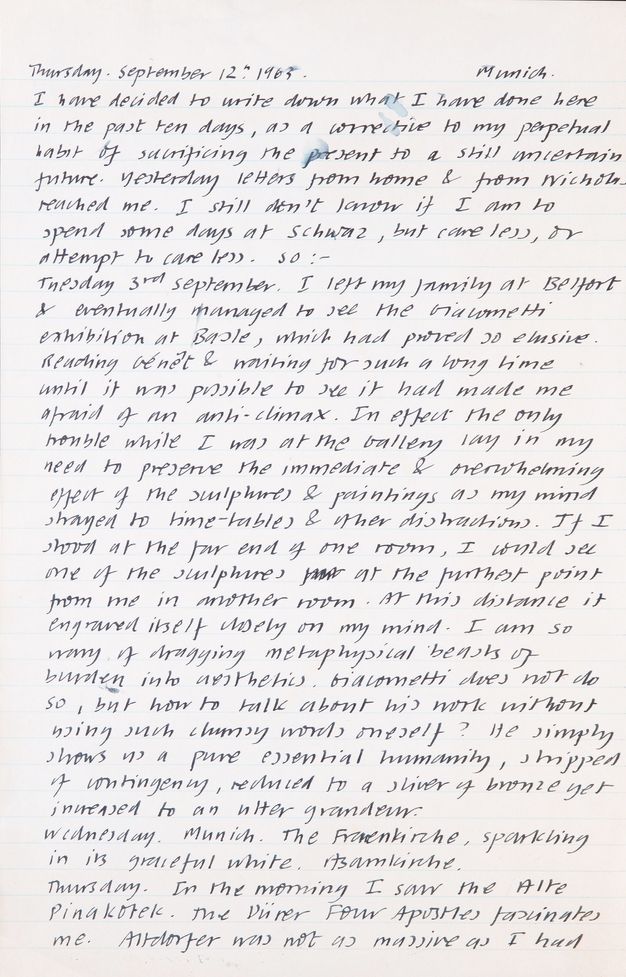 Thursday. September 12th 1963. Munich.
I have decided to write down what I have done here
in the past ten days, as a corrective to my perpetual
habit of sacrificing the present to a still uncertain
future. Yesterday letters from home & from Nichols
reached me. I still don't know if I am to
spend some days at Schwaz, but care less, or
attempt to care less. So :-
Tuesday 3rd September. I left my family at Belfort
& eventually managed to see the Giacometti
exhibition at Basle, which had proved so elusive.
Reading Génêt & waiting for such a long time
until it was possible to see it had made me
afraid of an anti-climax. In effect the only
trouble while I was at the Gallery lay in my
need to preserve the immediate & overwhelming
effect of the sculptures & paintings as my mind
strayed to time-tables & other distractions. If I
stood at the far end of one room, I could see
one of the sculptures at the furthest point
from me in another room. At this distance it
engraved itself closely on my mind. I am so
wary of dragging metaphysical beasts of
burden into aesthetics. Giacometti does not do
so, but how to talk about his work without
using such clumsy words oneself? He simply
shows us a pure essential humanity, stripped
of contingency, reduced to a sliver of bronze yet
increased to an utter grandeur.
Wednesday. Munich. The Frauenkirche, sparkling
in its graceful white. Asamkirche.
Thursday. In the morning I saw the Alte
Pinakotek. The Dürer Four Apostles fascinates
me. Altdorfer was not as massive as I had